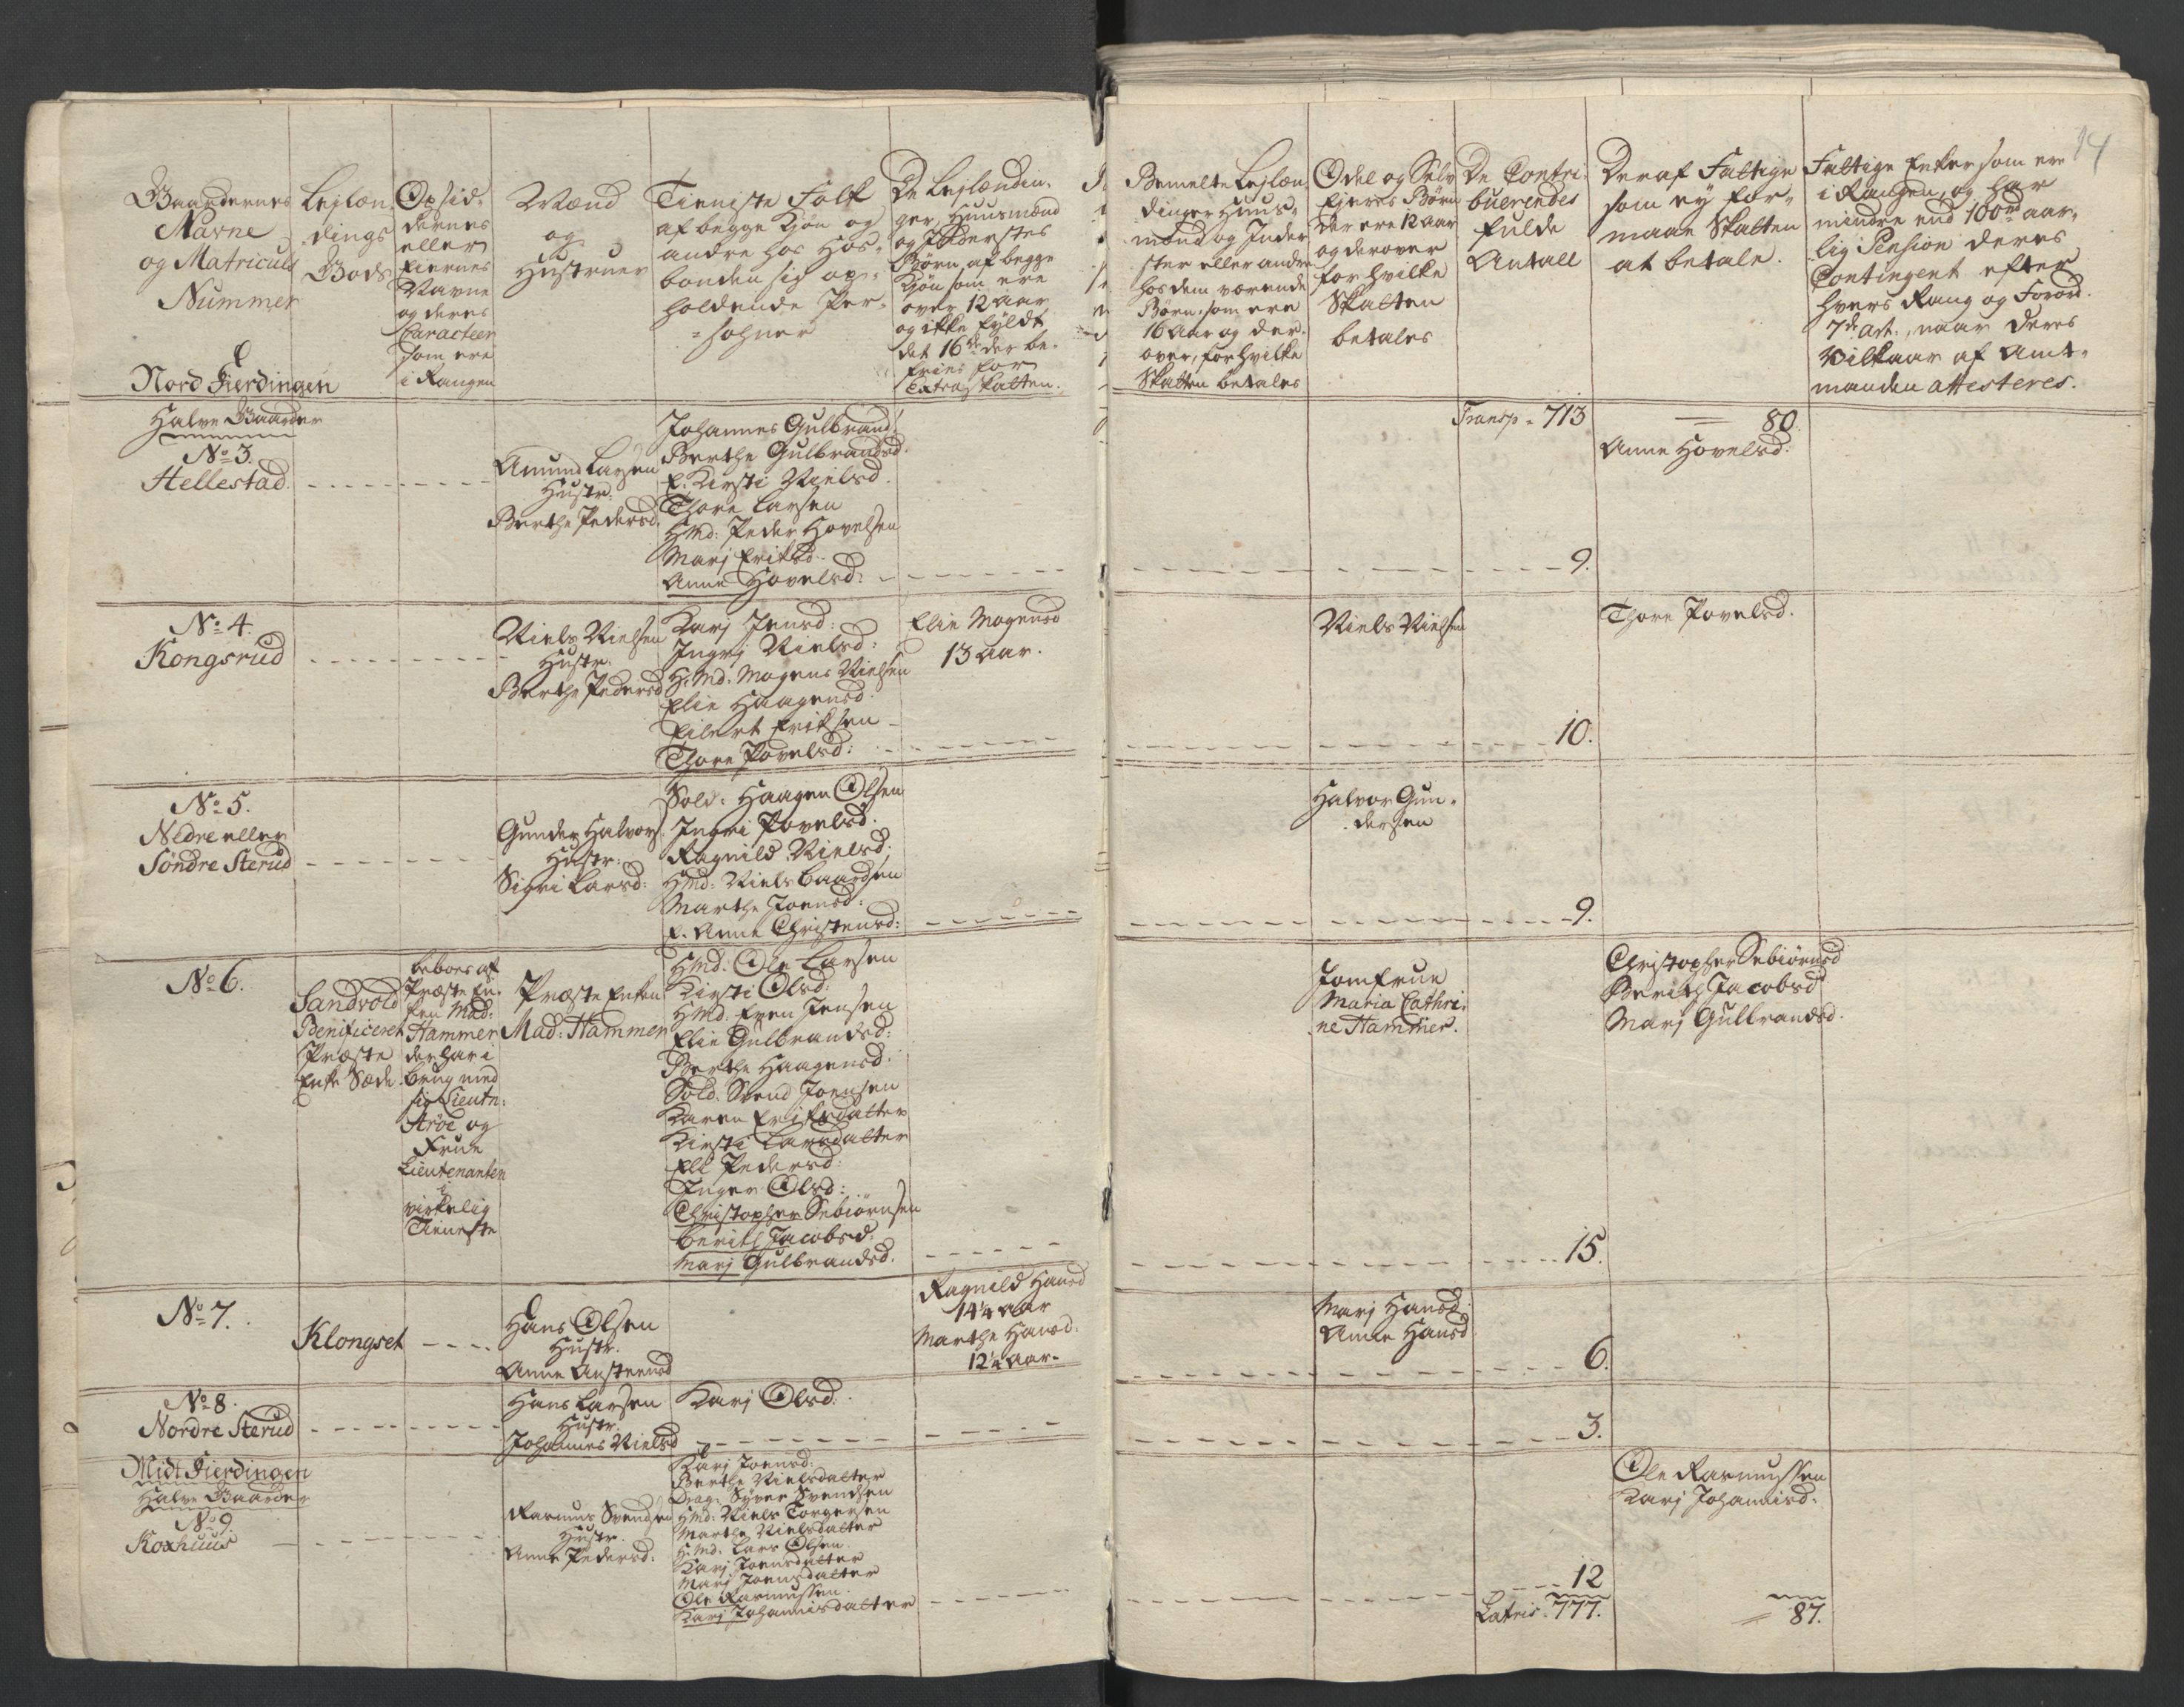 14
Gaardernes
Navne
og Matriculs
Nummer
Nord Fierdingen
Lejlæn-
dings
Gods
Opsid-
dernes
eller
Eiernes
Navne
og deres
Caracteer
som ere
i Rangen
Mænd
og
Hustruer
Tieniste Folk
af begge Kjøn og
andre hos Hos-
bonden sig op-
holdende Per-
sohner
De Lejlændin-
ger, Huusmænd
og Inderstes
Børn af begge
Kjøn som ere
over 12 aar
og ikke fyldt
det 16de der be-
fries for
Extra Skatten.
Bemelte Lejlæn-
dinger Huus-
mænd og Inder
ster eller andre
hos dem værende
Børn, som ere
16 aar og der-
over, for hvilke
Skatten betales
Odel og Selv
Ejeres Børn
der ere 12 aar
og derover
for hvilke
Skatten
betales
De Contri-
buerendes
fulde
Antall
Deraf Fattige
som ey for-
maae Skatten
at betale.
Fattige Enker som ere
i Rangen, og har
mindre end 100rd aar-
lig Pension deres
Contingent efter
hvers Rang og Forord.
7de Art., naar deres
Vilkaar af Amt-
manden attesteres.
Transp. 713
80.
Halve Gaarder
No 3.
Hellestad.
Amund Larsen
Hustr:
Berthe Pedersd.
Johannes Gulbrands.
Berthe Gulbrandsd.
E. Kirsti Nielsd.
Thore Larsen
Hmd: Peder Hovelsen
Marj Eriksd.
Anne Hovelsd:
9.
Anne Hovelsd.
No 4.
Kongsrud
Niels Nielsen
Hustr:
Berthe Pedersd
Karj Jensd:
Ingrj Nielsd:
H.Md. Mogens Nielsen
Elie Haagensd.
Eilert Eriksen
Thore Povelsd:
Elie Mogensd
13 aar.
Niels Nielsen
10.
Thore Povelsd.
No 5.
Nedre eller
Søndre Sterud
Gunder Halvors.
Hustr:
Sigri Larsd:
Sold: Haagen Olsen
Ingri Povelsd.
Ragnild Nielsd:
Hmd: Niels Baardsen
Marthe Joensd:
E. Anne Christensd:
Halvor Gun-
dersen
9.
No 6.
Sandvold
Benificeret
Præste
Enke Sæde.
beboes af
Præste En-
ken Mad:
Hammer
der har i
brug med
sig Lieutn:
Strøe og
Frue
Lieutenanten
i
virkelig
Tieneste
Præste Enken
Mad: Hammer
Hmd: Ole Larsen
Kirsti Olsd:
Hmd: Even Jensen
Elie Gulbrandsd:
Berthe Haagensd:
Sold. Svend Joensen
Karen Eriksdatter
Kirsti Larsdatter
Eli Pedersd:
Inger Olsd:
Christopher Sebiørnsen
Berith Jacobsd:
Marj Gulbrandsd.
Jomfrue
Maria Cathri-
ne Hammer.
15.
Christopher Sebiørnsd
Berith Jacobsd
Marj Gulbrandsd.
No 7.
Klongset
Hans Olsen
Hustr.
Anne Austeensd
Ragnild Hansd
14¼ aar
Marthe Hansd:
12¼ aar.
Marj Hansd.
Anne Hansd
6.
No 8.
Nordre Sterud
Hans Larsen
Hustr.
Johannes Nielsd
Karj Olsd:
3.
Midt Fierdingen
Halve Gaarder
No 9.
Koxhuus
Rasmus Svendsen
Hustr.
Anne Pedersd:
Karj Joensd:
Berthe Nielsdatter
Drag: Syver Svendsen
Hmd: Niels Torgersen
Marthe Nielsdatter
H.Md. Lars Olsen
Karj Joensdatter
Marj Joensdatter
Ole Rasmussen.
Karj Johannisdatter
Ole Rasmussen
Karj Johannisd:
12
Latris. 777.
87.